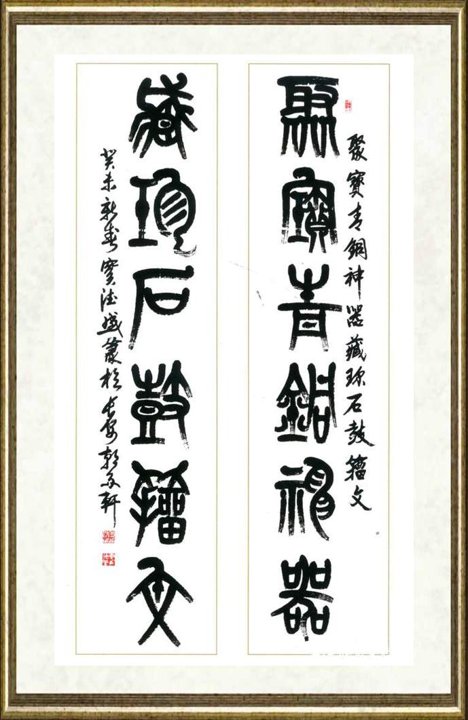 聚寶青銅神器藏珍石鼓籀文
聚寶青銅神器
藏珍石鼓籀文
癸未新春寶盛篆於長安軒